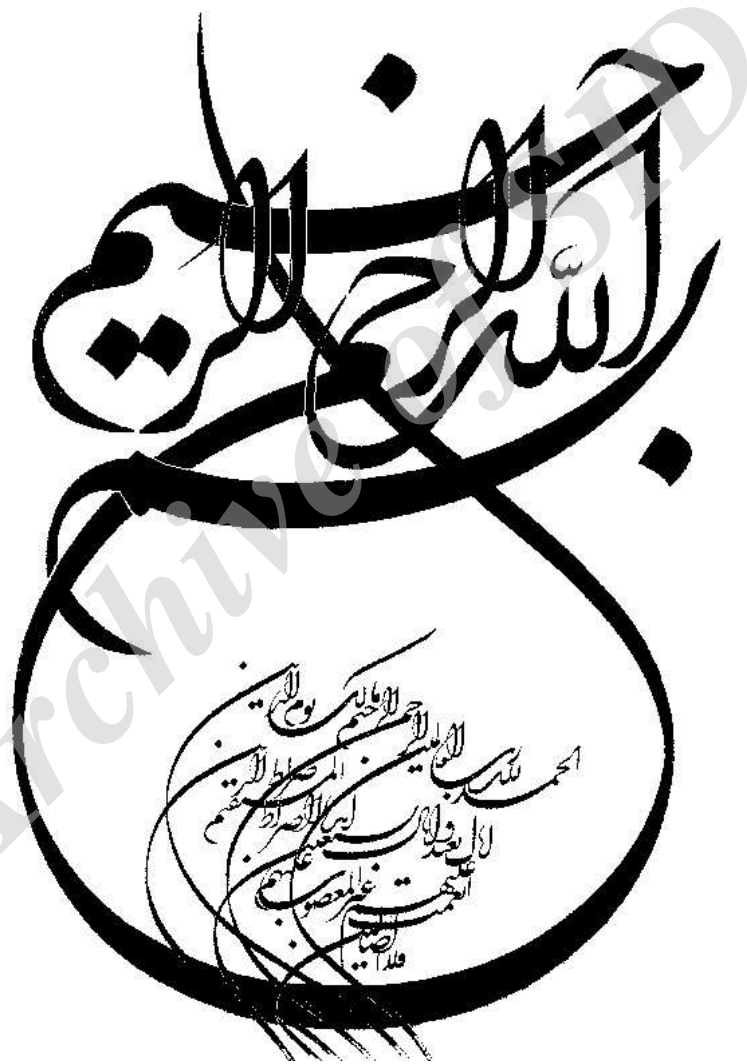 بسم الله الرحمن الرحیم
الحمد لله رب العالمین الرحمن الرحیم مالک یوم الدین
ایاک نعبد و ایاک نستعین اهدنا الصراط المستقیم صراط الذین
انعمت علیهم غیر المغضوب علیهم
ولا الضالین
Archive of SID